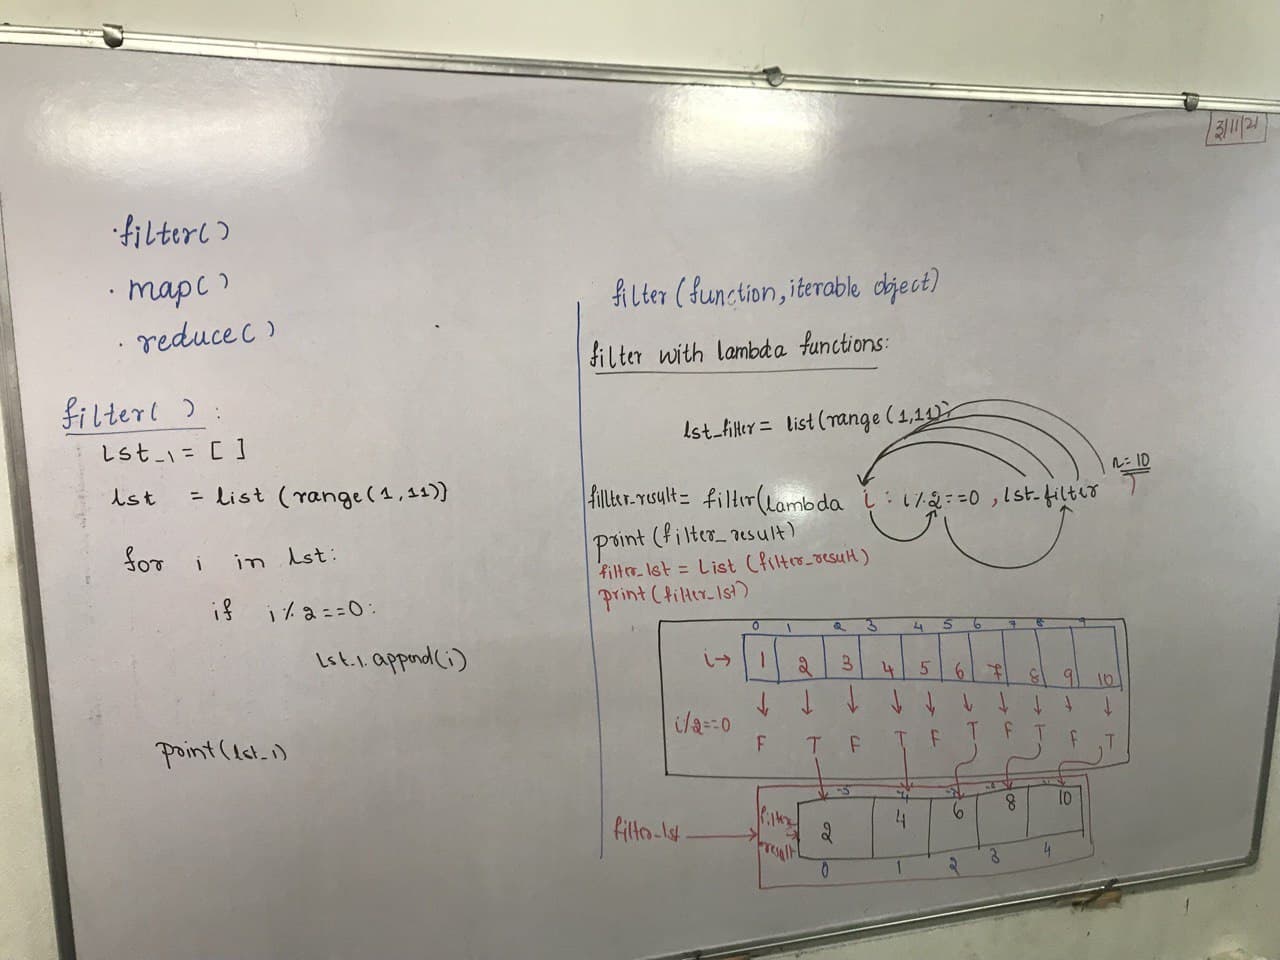 3/11/21
· filter()
· map()
· reduce()
filter( ) :
lst_1 = [ ]
lst = list (range(1,11))
for i in lst:
if i % 2 == 0:
lst_1. append(i)
print(lst_1)
filter (function, iterable object)
filter with lambda functions:
lst_filter = list(range(1,11))
n=10
fillter_result = filter(lambda i : i % 2 == 0 , lst_filter)
print (filter_result)
filter_lst = List (filter_result)
print (filter_lst)
0 1 2 3 4 5 6 7 8 9
i→ 1 2 3 4 5 6 7 8 9 10
↓ ↓ ↓ ↓ ↓ ↓ ↓ ↓ ↓ ↓
i/2==0
F T F T F T F T F T
-5 -4
filter_lst → filter_result 2 4 6 8 10
0 1 2 3 4